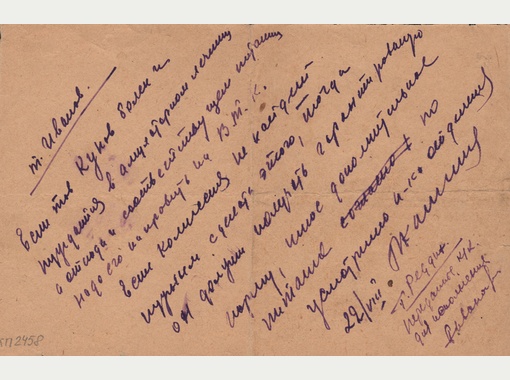 т. Иванов.
Если тов Куков болен и
нуждается в амбулаторном лечении
и отпода и соответствующем питании
надо его направить на В.Т.К.
Если комиссия не найдет
нужным сделать этого, тогда
он должен получать гарантированную
норму, плюс дополнительное
питание по
усмотрению н-ка отделения
22/VIII.
т. Редин.
для исполнения
Иванов
КП2458